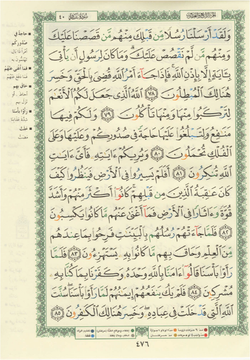 وَلَقَدْ أَرْسَلْنَا رُسُلًا مِّن قَبْلِكَ مِنْهُم مَّن قَصَصْنَا عَلَيْكَ
وَمِنْهُم مَّن لَّمْ نَقْصُصْ عَلَيْكَ ۗ وَمَا كَانَ لِرَسُولٍ أَن يَأْتِيَ
بِـَٔايَةٍ إِلَّا بِإِذْنِ ٱللَّهِ ۚ فَإِذَا جَآءَ أَمْرُ ٱللَّهِ قُضِيَ بِٱلْحَقِّ وَخَسِرَ
هُنَالِكَ ٱلْمُبْطِلُونَ ٧٨ ٱللَّهُ ٱلَّذِي جَعَلَ لَكُمُ ٱلْأَنْعَٰمَ
لِتَرْكَبُوا۟ مِنْهَا وَمِنْهَا تَأْكُلُونَ ٧٩ وَلَكُمْ فِيهَا
مَنَٰفِعُ وَلِتَبْلُغُوا۟ عَلَيْهَا حَاجَةً فِي صُدُورِكُمْ وَعَلَيْهَا وَعَلَى
ٱلْفُلْكِ تُحْمَلُونَ ٨٠ وَيُرِيكُمْ ءَايَٰتِهِۦ فَأَيَّ ءَايَٰتِ
ٱللَّهِ تُنكِرُونَ ٨١ أَفَلَمْ يَسِيرُوا۟ فِي ٱلْأَرْضِ فَيَنظُرُوا۟ كَيْفَ
كَانَ عَٰقِبَةُ ٱلَّذِينَ مِن قَبْلِهِمْ ۚ كَانُوٓا۟ أَكْثَرَ مِنْهُمْ وَأَشَدَّ
قُوَّةً وَءَاثَارًا فِي ٱلْأَرْضِ فَمَآ أَغْنَىٰ عَنْهُم مَّا كَانُوا۟ يَكْسِبُونَ
٨٢ فَلَمَّا جَآءَتْهُمْ رُسُلُهُم بِٱلْبَيِّنَٰتِ فَرِحُوا۟ بِمَا عِندَهُم
مِّنَ ٱلْعِلْمِ وَحَاقَ بِهِم مَّا كَانُوا۟ بِهِۦ يَسْتَهْزِءُونَ ٨٣ فَلَمَّا
رَأَوْا۟ بَأْسَنَا قَالُوٓا۟ ءَامَنَّا بِٱللَّهِ وَحْدَهُۥ وَكَفَرْنَا بِمَا كُنَّا بِهِۦ
مُشْرِكِينَ ٨٤ فَلَمْ يَكُ يَنفَعُهُمْ إِيمَٰنُهُمْ لَمَّا رَأَوْا۟ بَأْسَنَا ۖ سُنَّتَ
ٱللَّهِ ٱلَّتِي قَدْ خَلَتْ فِي عِبَادِهِۦ ۖ وَخَسِرَ هُنَالِكَ ٱلْكَٰفِرُونَ ٨٥
٤٧٦